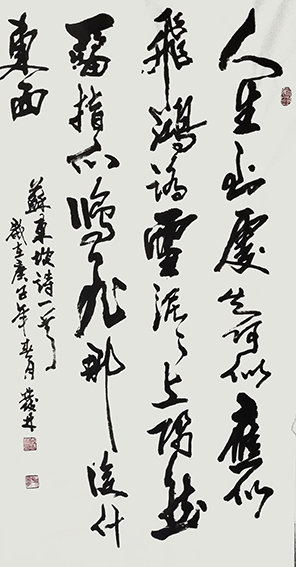 人生到處知何似應似
飛鴻踏雪泥々上偶然
留指爪鴻飛那復計
東西
蘇東坡詩一首
歲在庚年春月